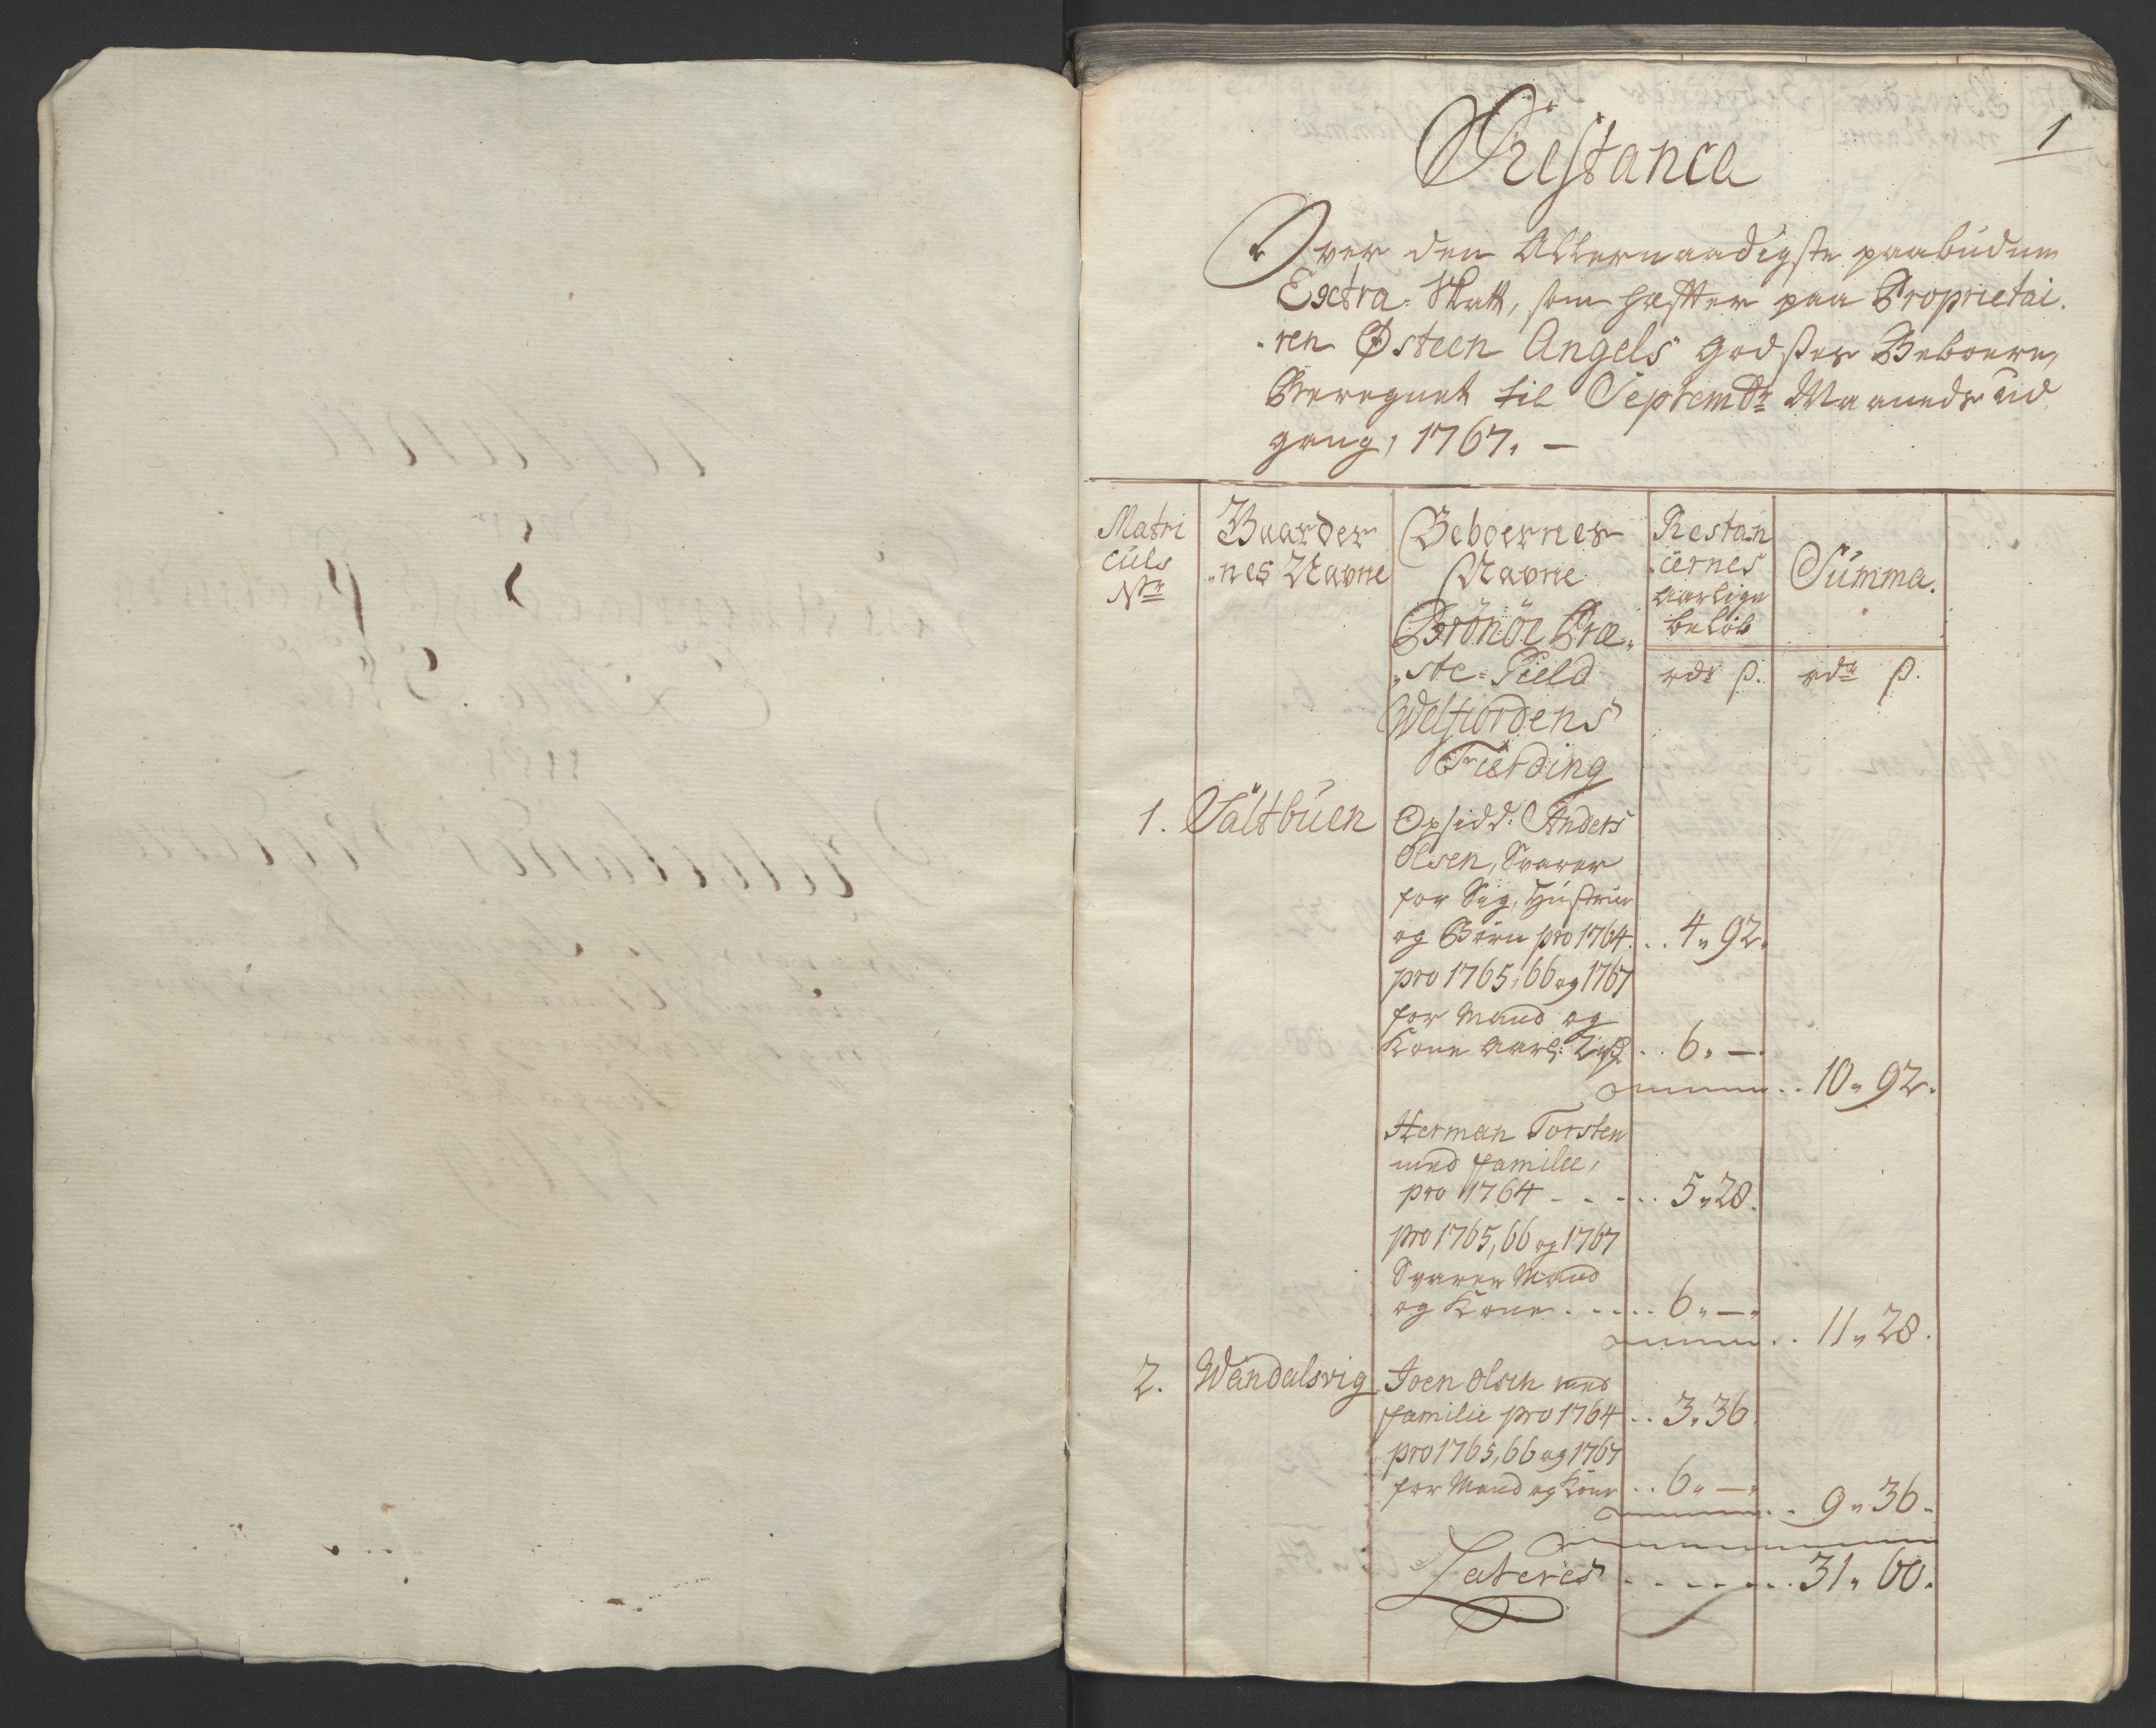 1
Restance
Over den Allernaadigste paabudne
Extra Skatt, som hæfter paa Proprietai.
„ren Østeen Angels godses Beboere,
Beregnet til Septembr Maaneds ud
gang, 1767. —
Matri
culs
Nr
Gaarder
„nes Navne
Beboernes
Navne
Restan
„cernes
aarlige
beløb
Summa.
Brönöe Præ„
„ste-Gield
rdr ß. rdr ß.
Welfiordens
Fierding
1. Saltbuen Opsidd: Anders
Olsen, Svarer
for Sig, Hustrue
og Børn pro 1764 . . 4„ 92„
pro 1765, 66 og 1767
for Mand og
Kone aarl: 2 rdr . . 6„ —
. . 10„ 92.
Herman Torsten
med familie,
pro 1764 - - - . . 5„ 28.
pro 1765, 66 og 1767
Svarer Mand
og Kone . . . . . . 6„ —„
. . 11„ 28.
2. Wandalsvig Joen Olsen med
familie pro 1764 . . 3„ 36
pro 1765, 66 og 1767
for Mand og Kone . . 6„ —„
. . 9„ 36.
Lateris - - - - - . . . 31„ 60.